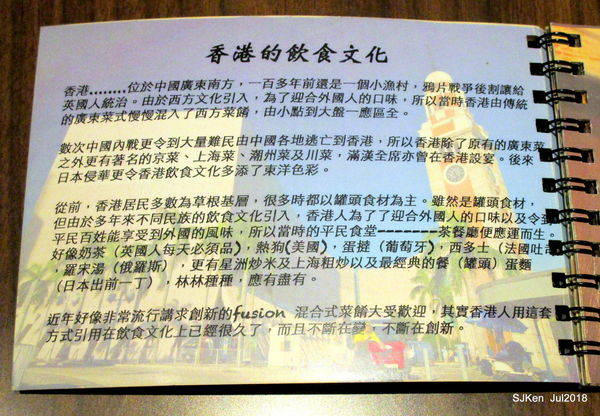 香港的飲食文化
香港........位於中國廣東南方，一百多年前還是一個小漁村，鴉片戰爭後割讓給
英國人統治。由於西方文化引入，為了迎合外國人的口味，所以當時香港由傳統
的廣東菜式慢慢混入了西方菜餚，由小點到大盤一應區全。
數次中國內戰更令到大量難民由中國各地逃亡到香港，所以香港除了原有的廣東菜
之外更有著名的京菜、上海菜、潮州菜及川菜，滿漢全席亦曾在香港設宴。後來
日本侵華更令香港飲食文化多添了東洋色彩。
從前，香港居民多數為草根基層，很多時都以罐頭食材為主。雖然是罐頭食材，
但由於多年來不同民族的飲食文化引入，香港人為了了迎合外國人的口味以及令到
平民百姓能享受到外國的風味，所以當時的平民食堂-------茶餐廳便應運而生。
好像奶茶（英國人每天必須品），熱狗(美國)，蛋撻（葡萄牙），西多士（法國吐司）
，羅宋湯（俄羅斯），更有星洲炒米及上海粗炒以及最經典的餐（罐頭）蛋麵
（日本出前一丁），林林種種，應有盡有。
近年好像非常流行講求創新的fusion 混合式菜餚大受歡迎，其實香港人用這套
方式引用在飲食文化上已經很久了，而且不斷在變，不斷在創新。
SJKen Jul2018